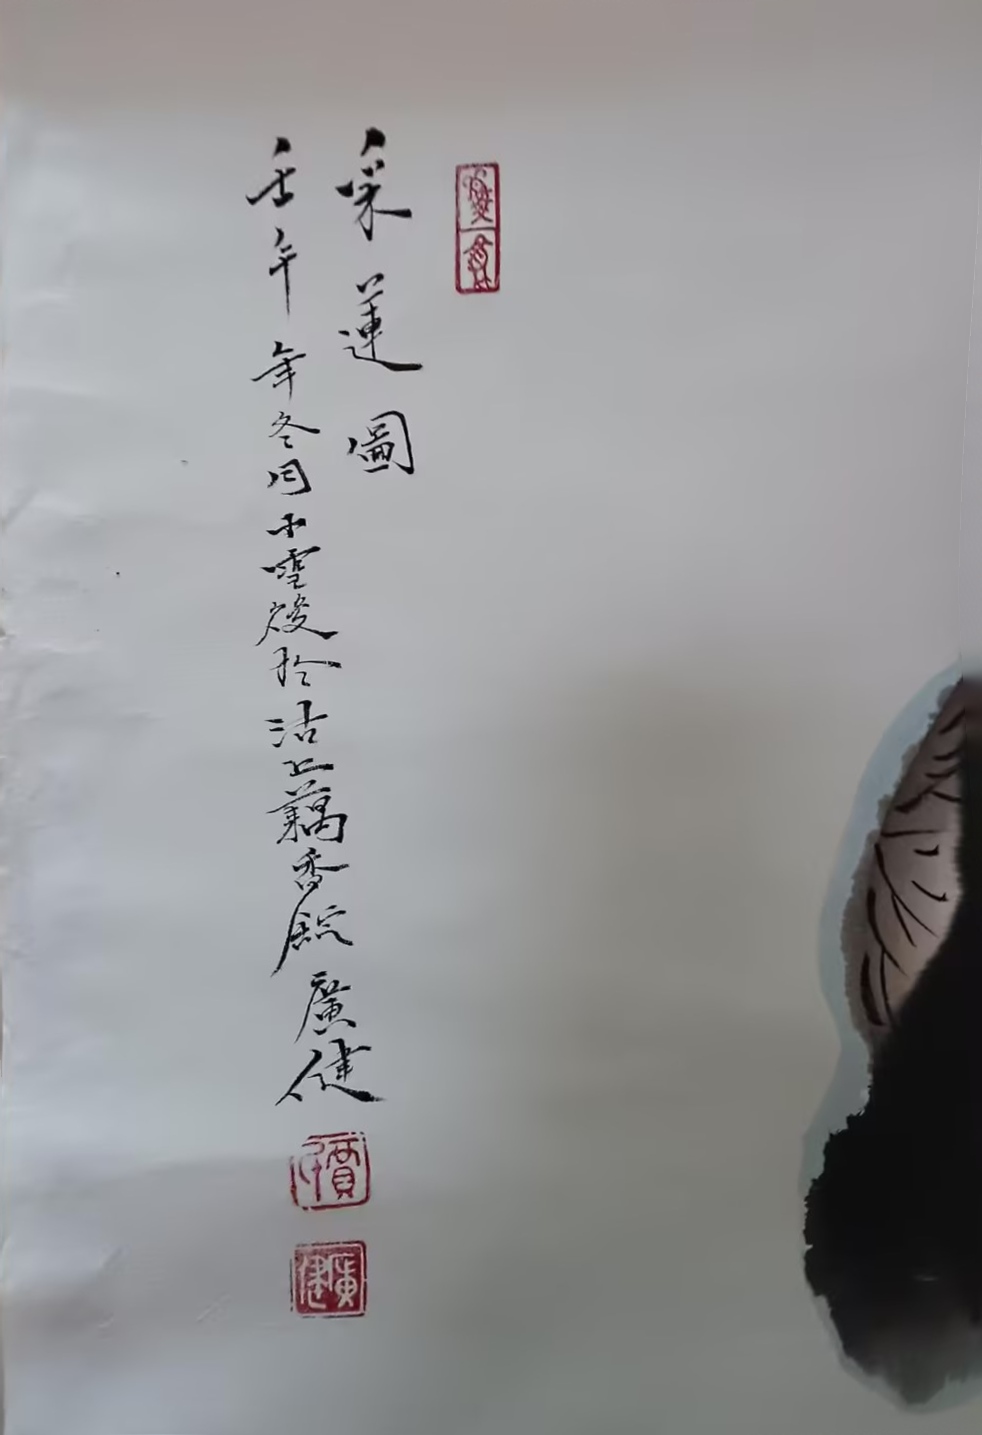 采蓮圖
壬午年冬月小雪後於沽上藕香館廣健
賈
廣健